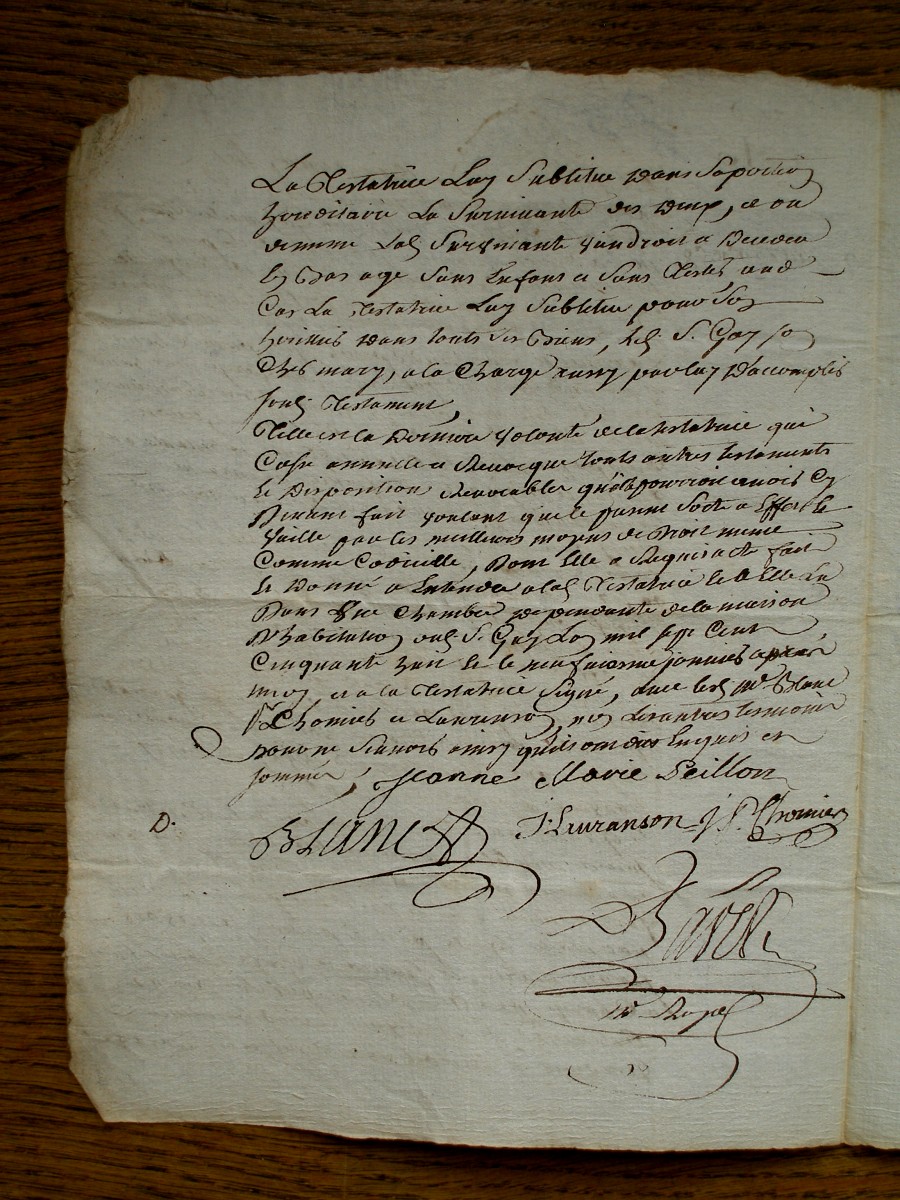 La Testatrice Luy Subtitue dans Sa portion
hereditaire La Survivante des deux, et ou
de meme Lad. Survivante viendroit a Deceder
En Bas age Sans Enfans et Sans Tester aud.
Cas La Testatrice Luy Subtitue pour Son
heritier dans touts ses Biens, led. S. Gay son
Cher mary, a la Charge aussy par luy D'accomplir
Son Testament
Telle est la Derniere volonté de la testatrice qui
Casse annulle et Revocque touts autres testaments
et Disposition Revocables qu'elle pourroit avoir Cy
Devant fait voulant que le present Sorte a Effet et
Vaille par les meilleurs moyens de Droit meme
Comme Codicille, Dont Elle a Requis acte fait
et Donné a Entendre a lad. Testatrice et a Elle Lu
Dans Une Chambre dependante de la maison
D'habitation aud. S. Gay L'an mil sept Cent
Cinquante huit et le neufvieme janvier apres
midy et a la Testatrice Signé, avec lesd. Mr. Blanc
Sr. Chomier et Lauranson, non les autres temoins
pour ne Scavoir ainsy qu'ils ont dit Enquis et
sommés, Jeanne Marie Peillon
D. BLANC J: Lauranson J. P. Chomier
Bavet
Nre Royal